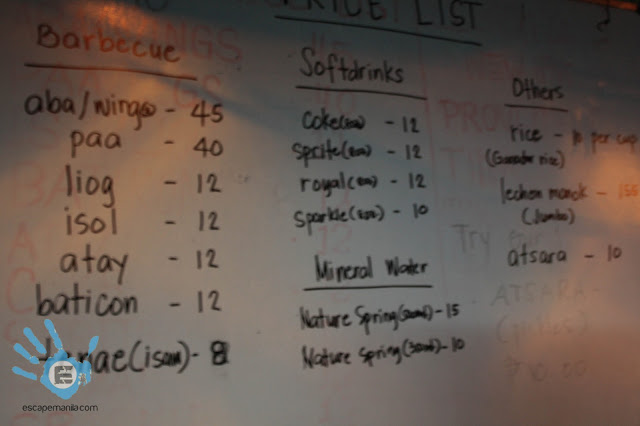 PRICE LIST
Barbecue
aba/wings - 45
paa - 40
liog - 12
isol - 12
atay - 12
baticon - 12
(isaw) - 8
Softdrinks
coke(8oz) - 12
sprite(8oz) - 12
royal(8oz) - 12
sparkle(8oz) - 10
Mineral Water
Nature Spring(500ml) - 15
Nature Spring(350ml) - 10
Others
rice - 10 per cup
(Ganador rice)
lechon manok - 155
(Jumbo)
atsara - 10
Try our
ATSARA -
(pickles)
escapemanila.com